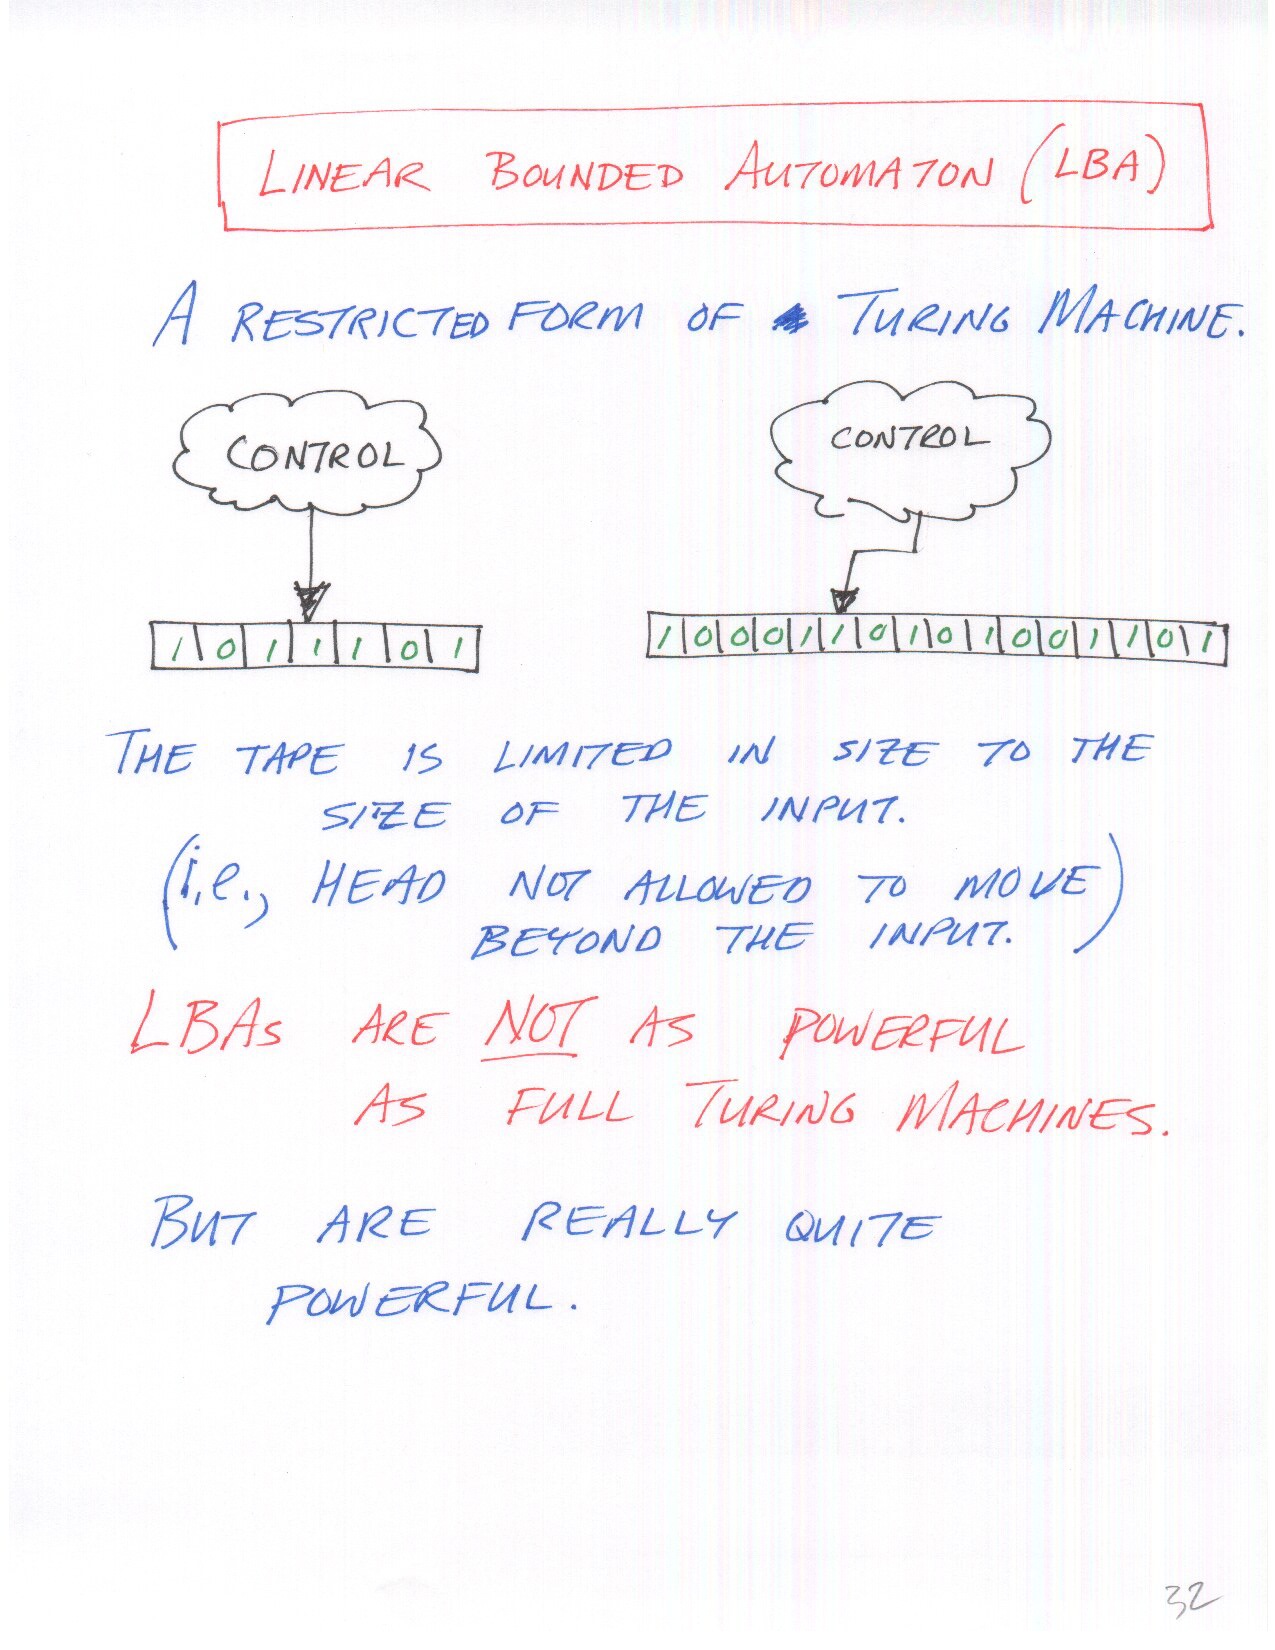 LINEAR BOUNDED AUTOMATON (LBA)
A RESTRICTED FORM OF TURING MACHINE.
CONTROL
CONTROL
1 0 1 1 1 0 1
1 0 0 0 1 1 0 1 0 1 0 0 1 1 0 1
THE TAPE IS LIMITED IN SIZE TO THE
SIZE OF THE INPUT.
(i.e., HEAD NOT ALLOWED TO MOVE
BEYOND THE INPUT.)
LBAs ARE NOT AS POWERFUL
AS FULL TURING MACHINES.
BUT ARE REALLY QUITE
POWERFUL.
32